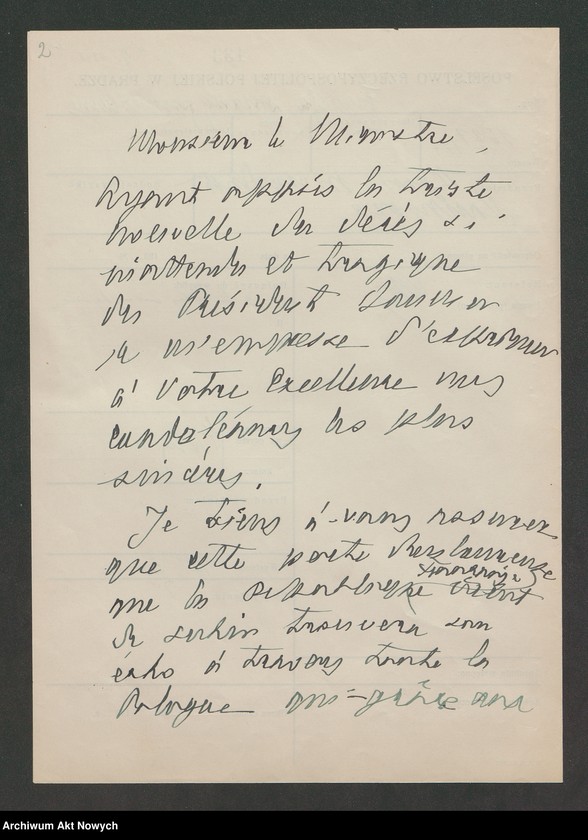 2
Monsieur le Ministre,
Ayant appris la triste
nouvelle du décès si
inattendu et tragique
du Président
je m'empresse d'exprimer
à Votre Excellence mes
condoléances les plus
sincères.
Je tiens à vous assurer
que cette perte douloureuse
que la République vient
de subir trouvera son
écho à travers toute la
Pologne qui grâce aux
Archiwum Akt Nowych